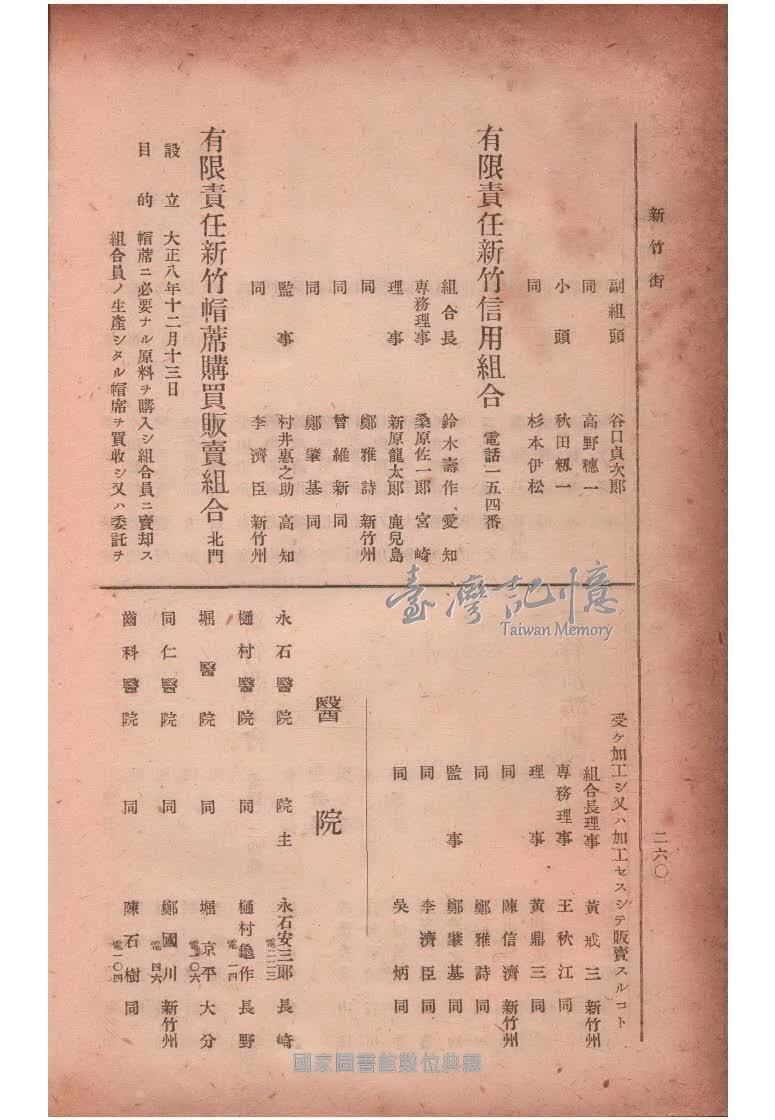 新竹街
二六〇
副組頭 谷口貞次郎
同 高野穗一
小頭 秋田籾一
同 杉本伊松
有限責任新竹信用組合 電話一五四番
組合長 鈴木壽作 愛知
専務理事 桑原佐一郎 宮崎
理事 新原龍太郎 鹿兒島
同 鄭雅詩 新竹州
同 曾維新 同
同 鄭肇基 同
監事 村井惠之助 高知
同 李濟臣 新竹州
有限責任新竹帽蓆購買販賣組合 北門
設立 大正八年十二月十三日
目的 帽蓆ニ必要ナル原料ヲ購入シ組合員ニ賣却ス
組合員ノ生產シタル帽席ヲ買收シ又ハ委託ヲ
受ケ加工シ又ハ加工セスシテ販賣スルコト
組合長理事 黃戒三 新竹州
専務理事 王秋江 同
理事 黃鼎三 同
同 陳信濟 新竹州
同 鄭雅詩 同
監事 鄭肇基 同
同 李濟臣 同
同 吳炳 同
醫院
永石醫院 院主 永石安三郎 長崎
電二二三
樋村醫院 同 樋村龜作 長野
電一四
堀醫院 同 堀京平 大分
電一〇六
同仁醫院 同 鄭國川 新竹州
電四六
齒科醫院 同 陳石樹 同
電一〇四
臺灣記憶
Taiwan Memory
國家圖書館數位典藏